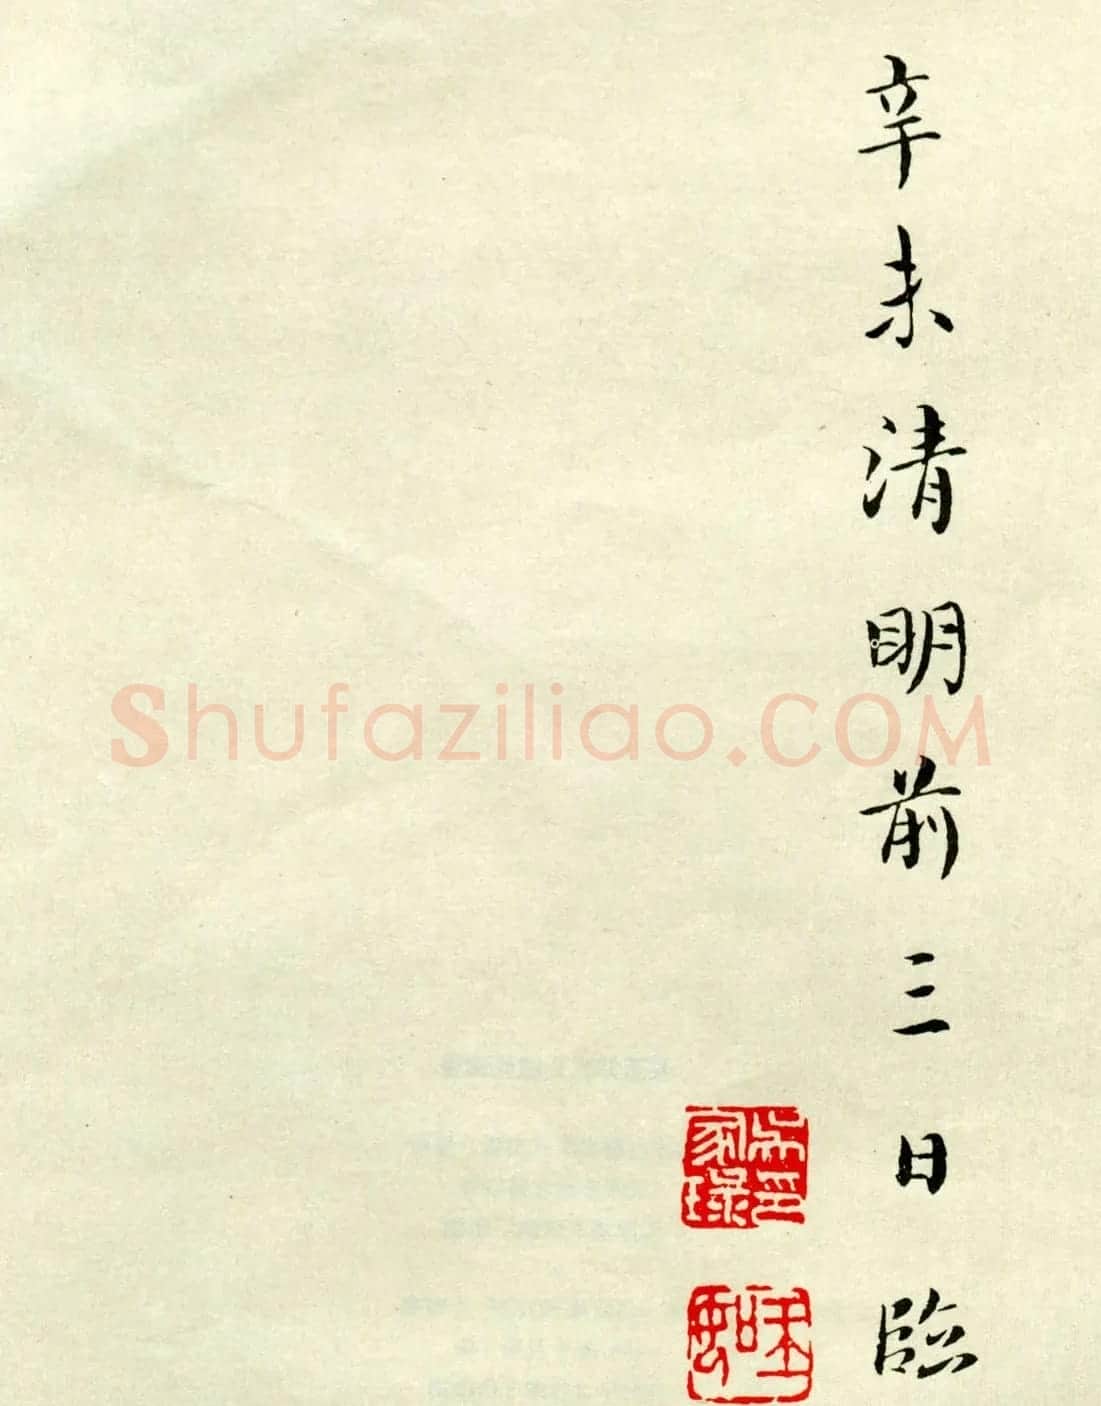 辛未清明前三日臨
Shufaziliao.COM